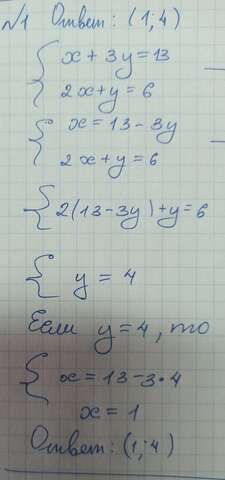 №1 Ответ: (1;4)
{ x + 3y = 13
2x + y = 6
{ x = 13 - 3y
2x + y = 6
{ 2(13 - 3y) + y = 6
{ y = 4
Если y = 4, то
{ x = 13 - 3 · 4
x = 1
Ответ: (1; 4)